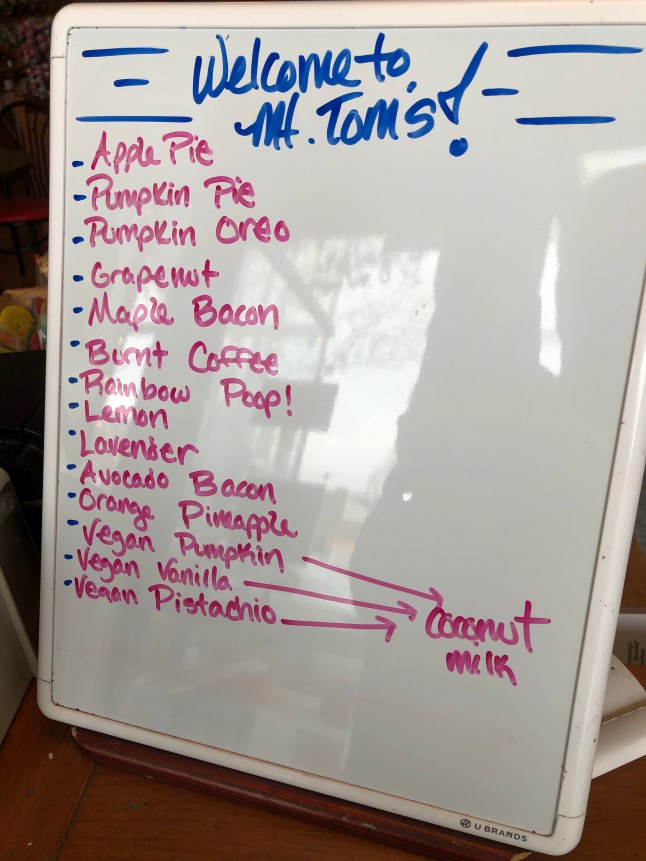 Welcome to
Mt. Tom's!
Apple Pie
Pumpkin Pie
Pumpkin Oreo
Grapenut
Maple Bacon
Burnt Coffee
Rainbow Poop!
Lemon
Lavender
Avocado Bacon
Orange Pineapple
Vegan Pumpkin
Vegan Vanilla
Vegan Pistachio
Coconut
milk
U BRANDS